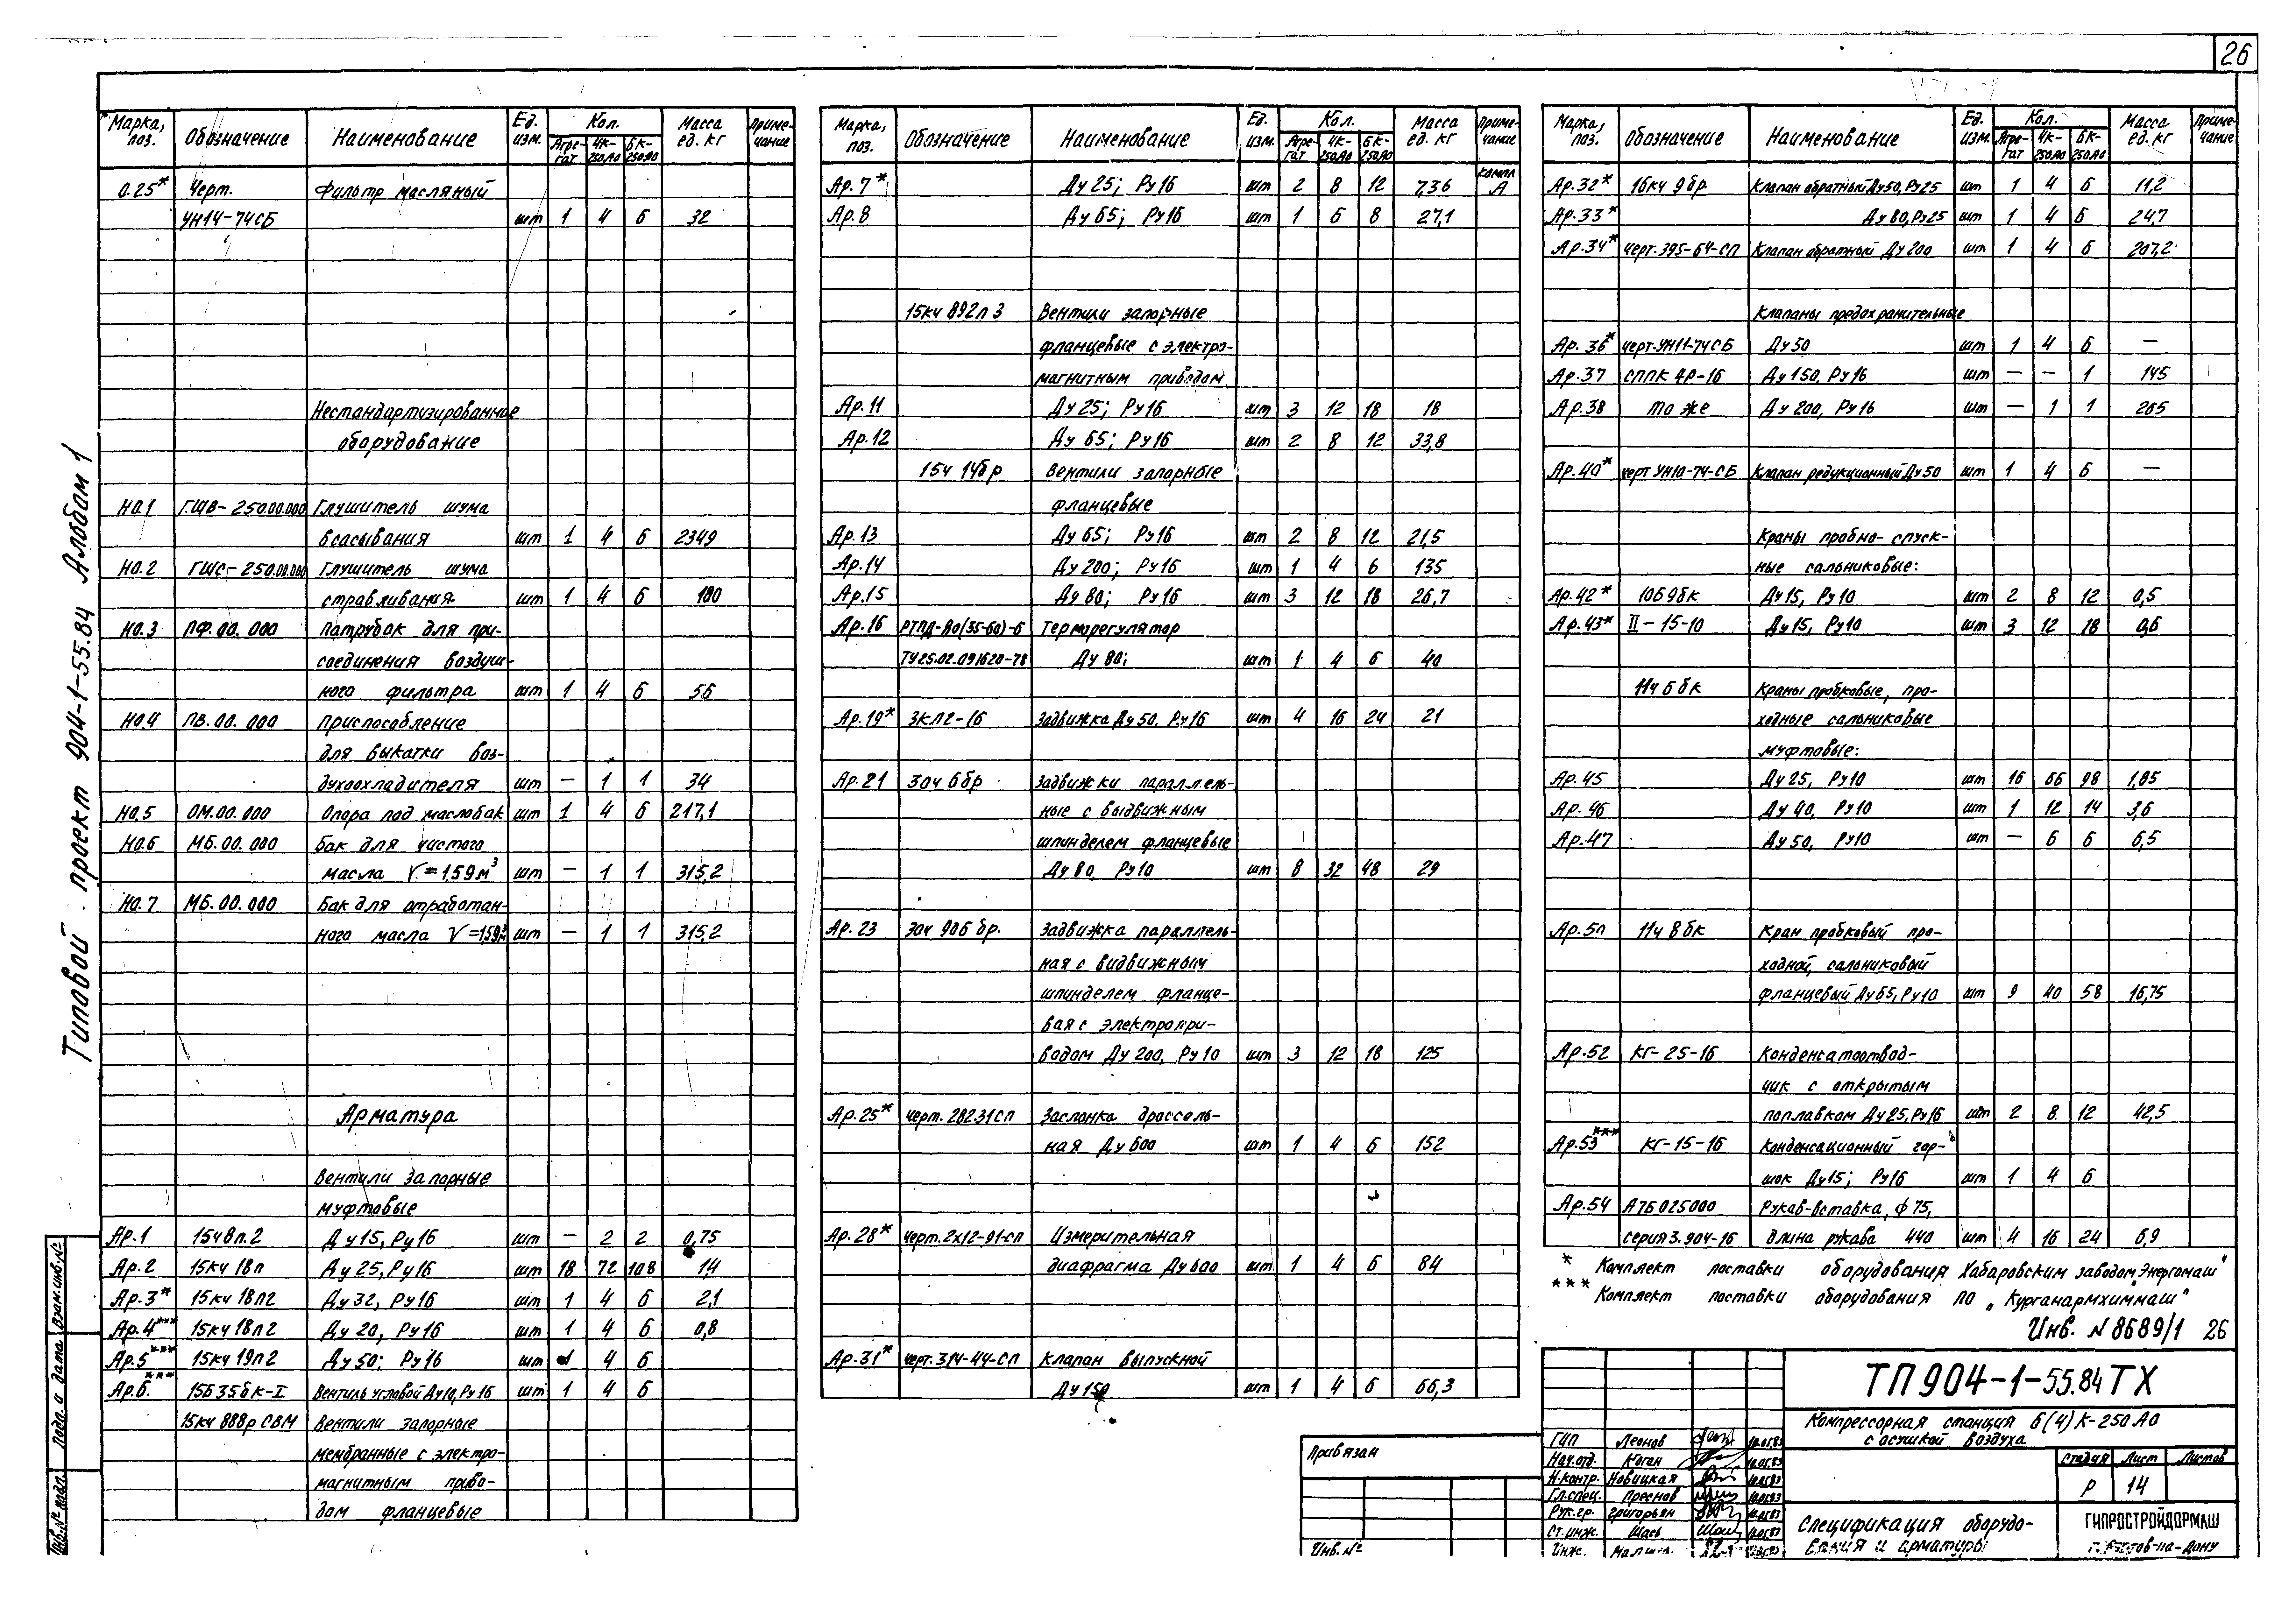 26
Типовой проект 904-1-55.84 Альбом 1
Марка, поз. Обозначение Наименование Ед. изм. Кол. Масса ед. кг Приме-чание
Агре-гат 4К-250А0 6К-250А0
0.25* Черт. Фильтр масляный
УН14-74СБ шт 1 4 6 32
Нестандартизированное
оборудование
НО.1 ГШВ-250.00.000 Глушитель шума
всасывания шт 1 4 6 2349
НО.2 ГШС-250.00.000 Глушитель шума
стравливания шт 1 4 6 180
НО.3 ПФ.00.000 Патрубок для при-
соединения воздуш-
ного фильтра шт 1 4 6 56
НО.4 ПВ.00.000 Приспособление
для выкатки воз-
духоохладителя шт — 1 1 34
НО.5 ОМ.00.000 Опора под маслобак шт 1 4 6 217,1
НО.6 МБ.00.000 Бак для чистого
масла V=1,59м³ шт — 1 1 315,2
НО.7 МБ.00.000 Бак для отработан-
ного масла V=1,59м³ шт — 1 1 315,2
Арматура
Вентили запорные
муфтовые
Ар.1 15ч8п.2 Ду15, Ру16 шт — 2 2 0,75
Ар.2 15кч 18п Ду 25, Ру16 шт 18 72 108 1,4
Ар.3* 15кч 18п2 Ду 32, Ру16 шт 1 4 6 2,1
Ар.4*** 15кч 18п2 Ду 20, Ру16 шт 1 4 6 0,8
Ар.5*** 15кч 19п2 Ду 50; Ру16 шт 4 6
Ар.6.*** 15Б35бк-I Вентиль угловой Ду10, Ру16 шт 1 4 6
15кч 888р СВМ Вентили запорные
мембранные с электро-
магнитным приво-
дом фланцевые
Марка, поз. Обозначение Наименование Ед. изм. Кол. Масса ед. кг Приме-чание
Агре-гат 4К-250А0 6К-250А0
Ар.7* Ду 25; Ру16 шт 2 8 12 7,36 компл А
Ар.8 Ду 65; Ру16 шт 1 6 8 27,1
15кч 892п 3 Вентили запорные
фланцевые с электро-
магнитным приводом
Ар.11 Ду 25; Ру16 шт 3 12 18 18
Ар.12 Ду 65; Ру16 шт 2 8 12 33,8
15ч 14бр Вентили запорные
фланцевые
Ар.13 Ду 65; Ру16 шт 2 8 12 21,5
Ар.14 Ду 200; Ру16 шт 1 4 6 135
Ар.15 Ду 80; Ру16 шт 3 12 18 26,7
Ар.16 РТПД-80(35-60)-6 Терморегулятор
ТУ25.02.091620-78 Ду 80; шт 1 4 6 40
Ар.19* ЗКЛ2-16 Задвижка Ду 50, Ру16 шт 4 16 24 21
Ар.21 30ч 6бр Задвижки параллель-
ные с выдвижным
шпинделем фланцевые
Ду 80, Ру10 шт 8 32 48 29
Ар.23 30ч 906 бр. Задвижка параллель-
ная с видвижным
шпинделем фланце-
вая с электропри-
водом Ду 200, Ру 10 шт 3 12 18 125
Ар.25* Черт. 28231СП Заслонка дроссель-
ная Ду 600 шт 1 4 6 152
Ар.28* Черт.2х12-91-СП Измерительная
диафрагма Ду 600 шт 1 4 6 84
Ар.31* Черт.314-44-СП Клапан выпускной
Ду 150 шт 1 4 6 66,3
Марка, поз. Обозначение Наименование Ед. изм. Кол. Масса ед. кг Приме-чание
Агре-гат 4К-250А0 6К-250А0
Ар.32* 16кч 9бр Клапан обратный Ду50, Ру25 шт 1 4 6 11,2
Ар.33* Ду 80, Ру25 шт 1 4 6 24,7
Ар.34* Черт.395-64-СП Клапан обратный Ду 200 шт 1 4 6 207,2
Клапаны предохранительные
Ар.36* черт.УН11-74СБ Ду 50 шт 1 4 6 —
Ар.37 СППК 4Р-16 Ду 150, Ру16 шт — — 1 145
Ар.38 То же Ду 200, Ру16 шт — 1 1 265
Ар.40* черт УН10-74-СБ Клапан редукционный Ду50 шт 1 4 6 —
Краны пробно-спуск-
ные сальниковые:
Ар.42* 10Б9бк Ду15, Ру10 шт 2 8 12 0,5
Ар.43* II-15-10 Ду15, Ру10 шт 3 12 18 0,6
11ч 6бк Краны пробковые, про-
ходные сальниковые
муфтовые:
Ар.45 Ду 25, Ру10 шт 16 66 98 1,85
Ар.46 Ду 40, Ру10 шт 1 12 14 3,6
Ар.47 Ду 50, Ру10 шт — 6 6 6,5
Ар.50 11ч 8бк Кран пробковый про-
ходной, сальниковый
фланцевый Ду65, Ру10 шт 9 40 58 16,75
Ар.52 КГ-25-16 Конденсатоотвод-
чик с открытым
поплавком Ду25, Ру16 шт 2 8 12 42,5
Ар.53*** КГ-15-16 Конденсационный гор-
шок Ду15; Ру16 шт 1 4 6
Ар.54 А7Б025000 Рукав-вставка, ф 75,
серия 3.904-16 длина рукава 440 шт 4 16 24 6,9
* Комплект поставки оборудования Хабаровским заводом „Энергомаш"
*** Комплект поставки оборудования ПО „Курганармхиммаш"
Инв. N 8689/1 26
ТП904-1-55.84 ТХ
Компрессорная станция 6(4)К-250А0
с осушкой воздуха
Стадия Лист Листов
Р 14
Спецификация оборудо-
вания и арматуры
ГИПРОСТРОЙДОРМАШ
г. Ростов-на-Дону
ГИП Леонов 10.05.83
Нач.отд. Коган 10.05.83
Н.контр. Новицкая 10.05.83
Гл.спец. Преснов 10.05.83
Рук.гр. Григорьян 10.05.83
Ст.инж. Шась 10.05.83
Инж.
Привязан
Инв.№
Взам.инв.№
Подп. и дата
Инв.№ подл.